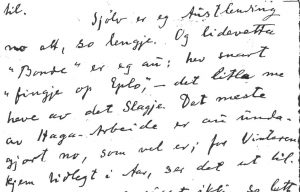 til. Sjølv er eg Austlending
no att, so lengje. Og lidevetta
"Bonde" er eg au; hev snart
"fingje op Eplo," – det litla me
heve av det Slagje. Det meste
av Haga-Arbeide er au unda-
gjort no, som vel er; for Vinteren
kjem tidlegt i Aar, ser det ut til.